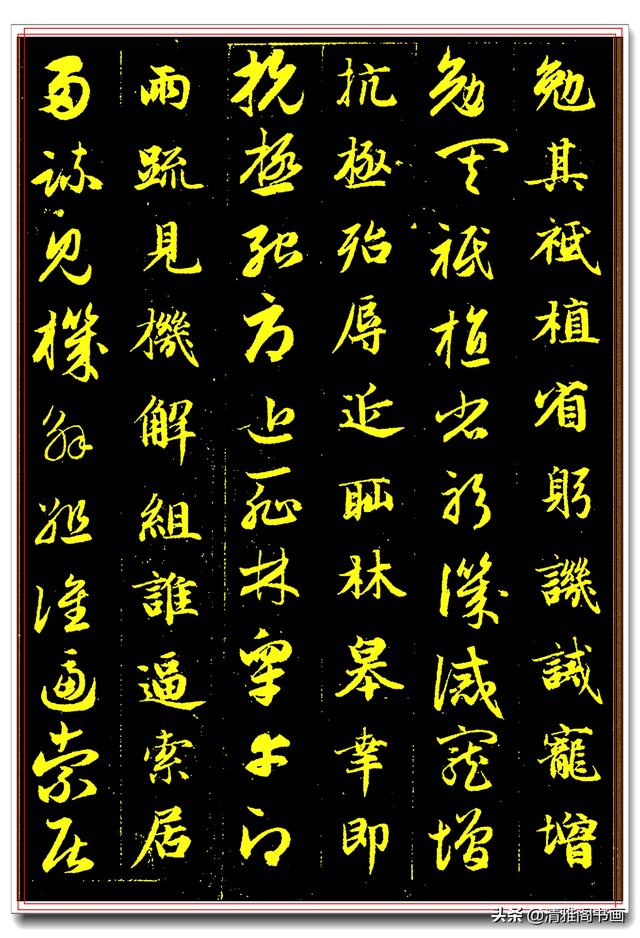 勉其祗植省躬譏誡寵增
勉其祗植省躬譏誡寵增
抗極殆辱近恥林皋幸即
抗極殆辱近恥林皋幸即
兩疏見機解組誰逼索居
兩疏見機解組誰逼索居
头条@清雅阁书画